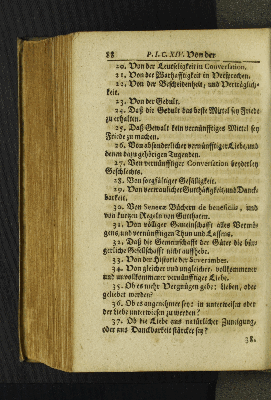 88 P. I. C. XIV. Von der
20. Von der Leutseligkeit in Conversation.
21. Von der Warhafftigkeit in Versprechen.
22. Von der Bescheidenheit, und Verträglich-
keit.
23. Von der Gedult.
24. Daß die Gedult das beste Mittel sey Friede
zu erhalten.
25. Daß Gewalt kein vernünfftiges Mittel sey
Friede zu machen.
26. Von absonderlicher vernünfftiger Liebe, und
denen dazu gehörigen Tugenden.
27. Von vernünfftiger Conversation beyderley
Geschlechts.
28. Von sorgfältiger Gefälligkeit.
29. Von vertraulicher Gutthätigkeit, und Danck-
barkeit.
30. Von Senecæ Büchern de beneficiis, und
von kurtzen Regeln von Gutthaten.
31. Von völliger Gemeinschafft alles Vermö-
gens, und vernünfftigen Thun und Lassens.
32. Daß die Gemeinschafft der Güter die bür-
gerliche Gesellschafft nicht auffhebe.
33. Von der Historie der Sevaramber.
34. Von gleicher und ungleicher, vollkommener
und unvollkommener vernünfftiger Liebe.
35. Ob es mehr Vergnügen gebe: lieben, oder
geliebet werden?
36. Ob es angenehmer sey: in unterweisen oder
der Liebe unterwiesen zu werden?
37. Ob die Liebe aus natürlicher Zuneigung,
oder aus Danckbarkeit stärcker sey?
38.